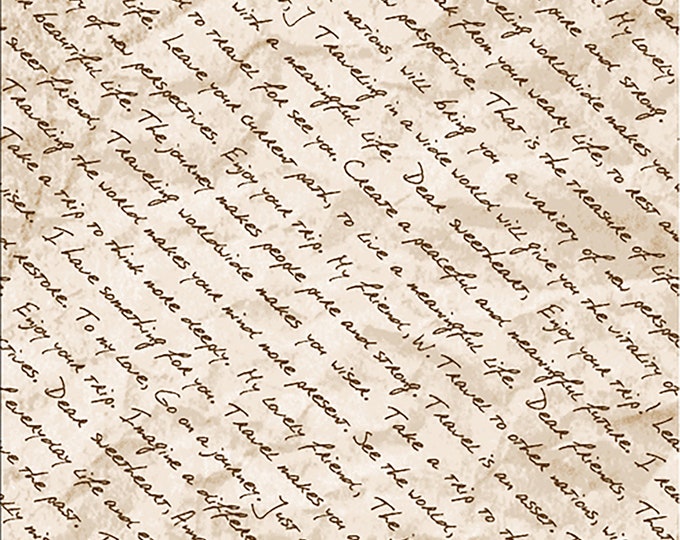 Dea
My lovely,
pure and strong.
Traveling worldwide makes you w
from your weary life, to rest an
new perspective. That is the treasure of life
nations, will bring you a variety of new perspe
t. J Traveling in a wide world will give you the vitality of
with a meaningful life. Dear sweetheart, Enjoy your trip. Lea
to travel for see you. Create a peaceful and meaningful future. I rem
life. Leave your current path, to live a meaningful life. Dear friends, That
y of new perspectives. Enjoy your trip. My friend, W. Travel to other nations, wi
beautiful life. The journey makes people pure and strong. Travel is an asset. T
sweet friend, Traveling worldwide makes you wiser. Take a trip to the
Traveling the world makes your mind more present. See the world,
Take a trip to think more deeply. My lovely friend, The
wiser. I have something for you. Travel makes you a
d restore. To my love, Go on a journey. Just
Enjoy your trip. Imagine a differe
ctives. Dear sweetheart, Ama
everyday life and e
e the past. T
ally mi